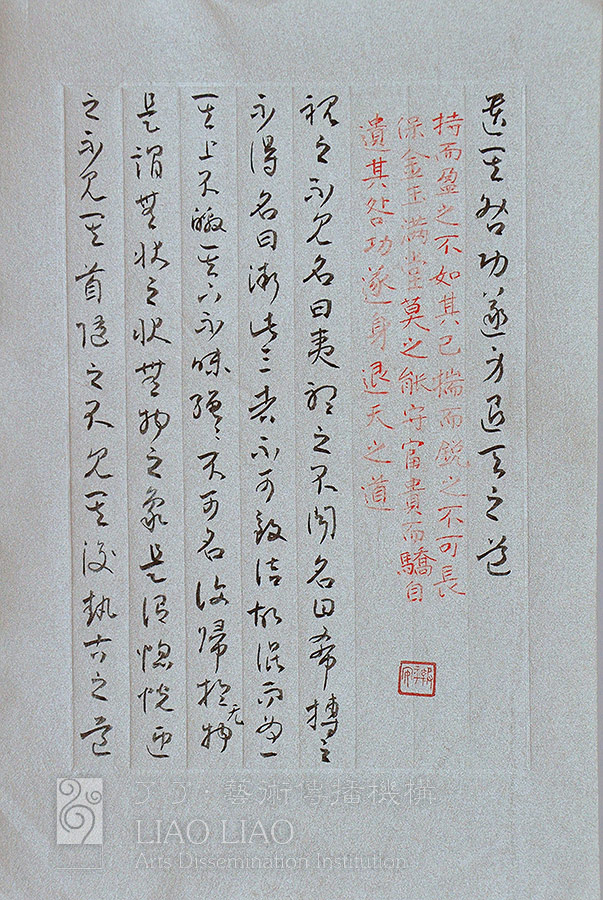 遺其咎功遂身退天之道
持而盈之不如其已揣而銳之不可長
保金玉滿堂莫之能守富貴而驕自
遺其咎功遂身退天之道
視之不見名曰夷聽之不聞名曰希摶之
不得名曰微此三者不可致詰故混而為一
其上不皦其下不昧繩繩不可名復歸於无物
是謂無狀之狀無物之象是謂惚恍迎
之不見其首隨之不見其後執古之道
了了·藝術傳播機構
LIAO LIAO
Arts Dissemination Institution